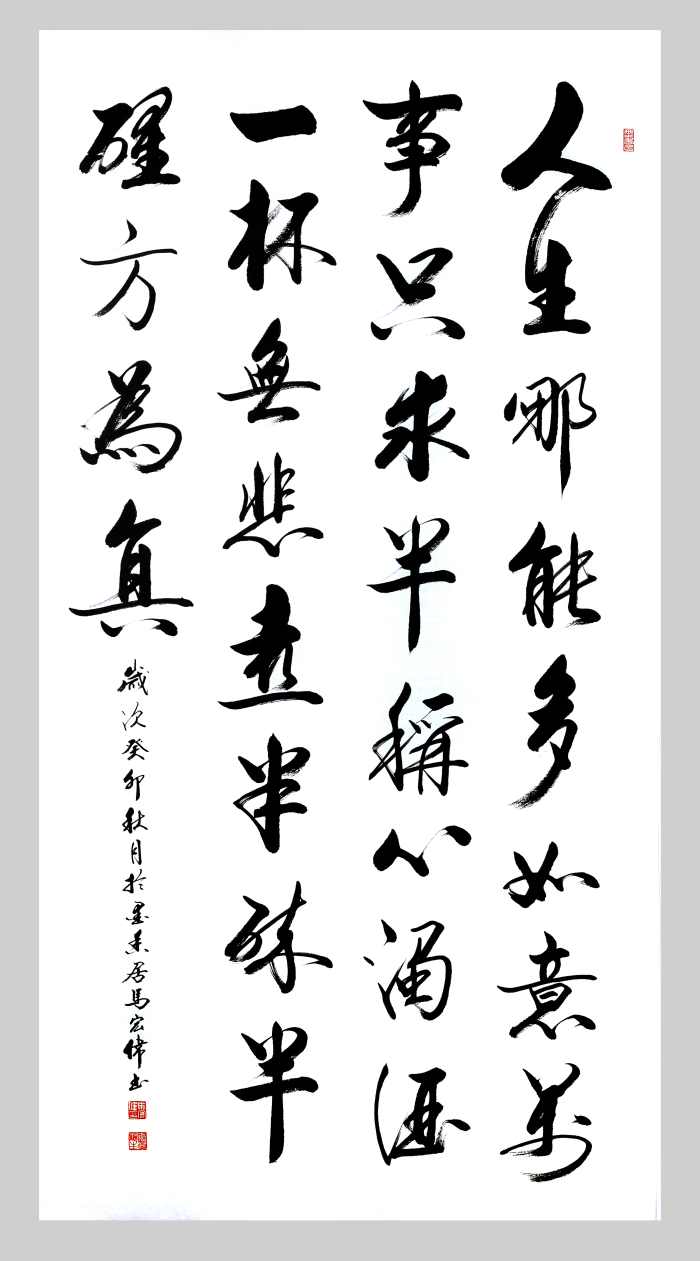 人生哪能多如意萬
事只求半稱心濁酒
一杯無悲喜半醉半
醒方為真
歲次癸卯秋月於墨香居馬宏偉書